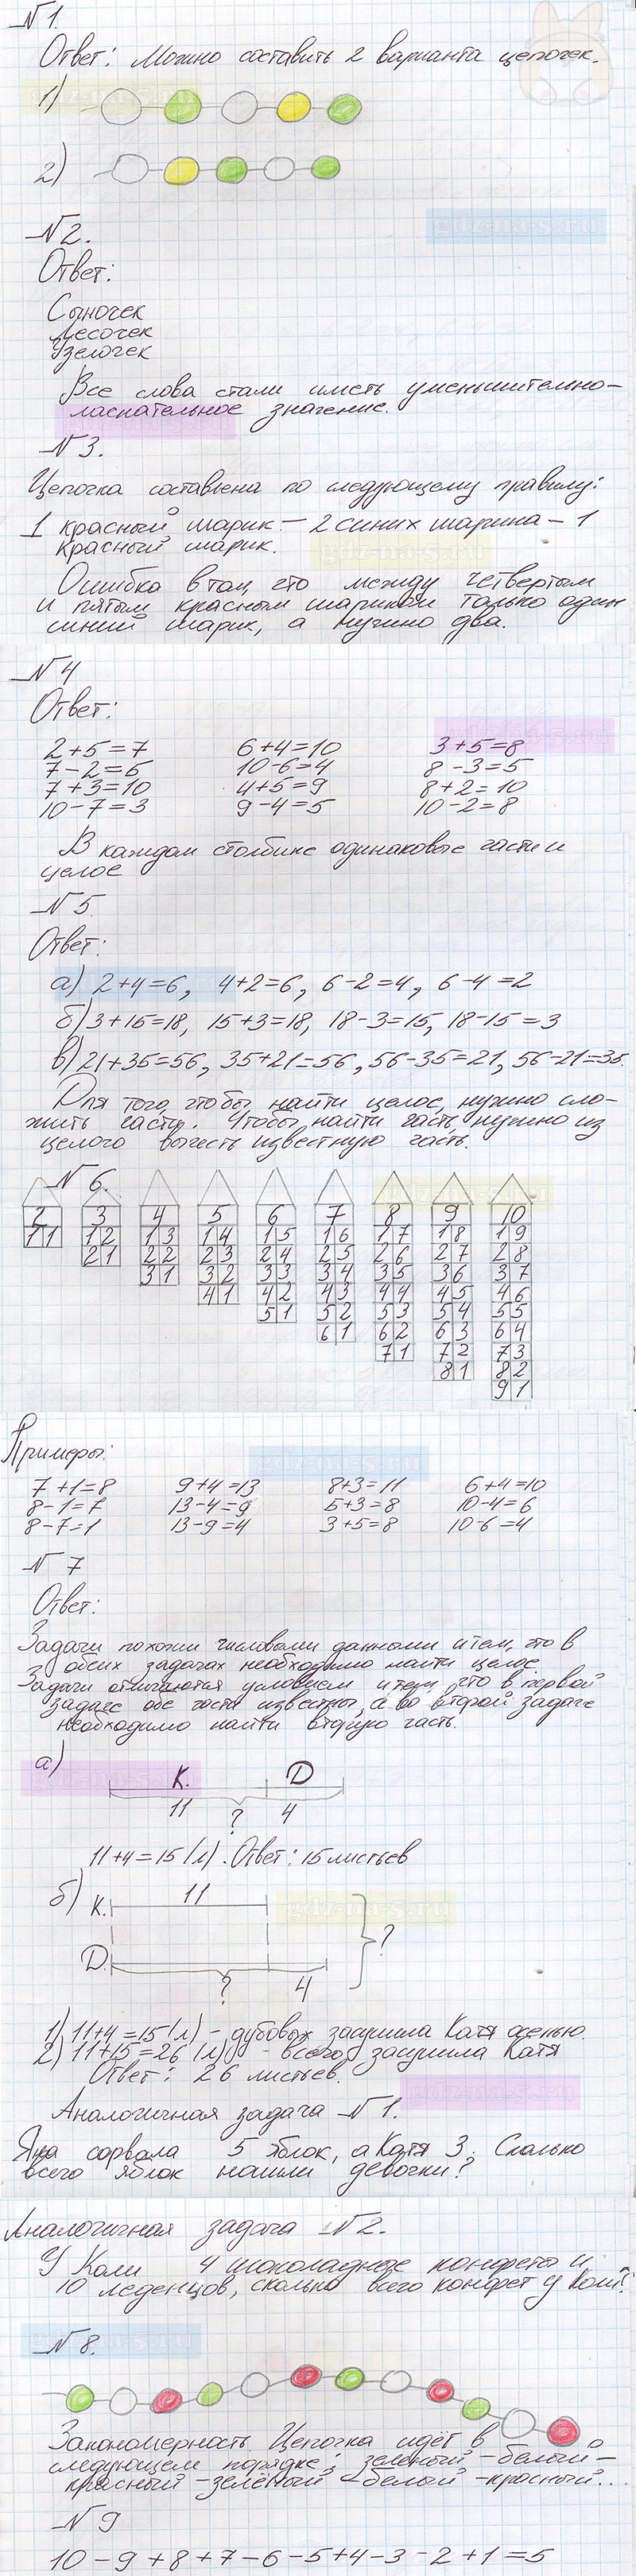 № 1.
Ответ: Можно составить 2 варианта цепочек.
1)
2)
gdz-na-5.ru
№ 2.
Ответ:
Сыночек
Лесочек
Узелочек
Все слова стали иметь уменьшительно-
ласкательное значение.
№ 3.
Цепочка составлена по следующему правилу:
1 красный шарик - 2 синих шарика - 1
красный шарик.
gdz-na-5.ru
Ошибка в том, что между четвертым
и пятым красным шариком только один
синий шарик, а нужно два.
№ 4
Ответ:
2+5=7 6+4=10 3+5=8
7-2=5 10-6=4 8-3=5
7+3=10 4+5=9 8+2=10
10-7=3 9-4=5 10-2=8
В каждом столбике одинаковые части и
целое
№ 5
Ответ:
а) 2+4=6, 4+2=6, 6-2=4, 6-4=2
б) 3+15=18, 15+3=18, 18-3=15, 18-15=3
в) 21+35=56, 35+21=56, 56-35=21, 56-21=35.
Для того, чтобы найти целое, нужно сло-
жить части. Чтобы найти часть, нужно из
целого вычесть известную часть.
№ 6.
2 3 4 5 6 7 8 9 10
1 1 1 2 1 3 1 4 1 5 1 6 1 7 1 8 1 9
2 1 2 2 2 3 2 4 2 5 2 6 2 7 2 8
3 1 3 2 3 3 3 4 3 5 3 6 3 7
4 1 4 2 4 3 4 4 4 5 4 6
5 1 5 2 5 3 5 4 5 5
6 1 6 2 6 3 6 4
7 1 7 2 7 3
8 1 8 2
9 1
Примеры:
7+1=8 9+4=13 8+3=11 6+4=10
8-1=7 13-4=9 5+3=8 10-4=6
8-7=1 13-9=4 3+5=8 10-6=4
№ 7
Ответ:
Задачи похожи числовыми данными и тем, что в
обеих задачах необходимо найти целое.
Задачи отличаются условием и тем, что в первой
задаче обе части известны, а во второй задаче
необходимо найти вторую часть.
а)
К. D
11 ? 4
11+4=15 (л). Ответ: 15 листьев
б) К. 11
gdz-na-5.ru
?
D.
? 4
1) 11+4=15 (л) - дубовых засушила Катя осенью.
2) 11+15=26 (л) - всего засушила Катя
Ответ: 26 листьев.
Аналогичная задача № 1.
Яна сорвала 5 яблок, а Катя 3. Сколько
всего яблок нашли девочки?
Аналогичная задача № 2.
У Коли 4 шоколадные конфеты и
10 леденцов, сколько всего конфет у Коли?
№ 8.
Закономерность. Цепочка идёт в
следующем порядке: зеленый - белый -
красный - зелёный - белый - красный...
№ 9
10-9+8+7-6-5+4-3-2+1=5